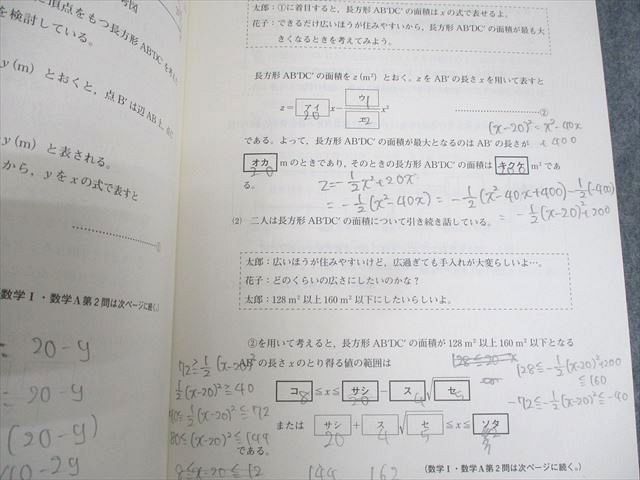 号図
頂点をもつ長方形 AB'DC' を
を検討している。
y(m) とおくと，点B'は辺AB上，
y(m) と表される。
から，yをxの式で表すと
①
数学Ⅰ・数学A第2問は次ページに続く。)
= 20-y
= 20-y
(20-y)
40-2y
太郎：①に着目すると，長方形 AB'DC' の面積はxの式で表せるよ。
花子：できるだけ広いほうが住みやすいから，長方形 AB'DC' の面積が最も大
きくなるときを考えてみよう。
長方形 AB'DC' の面積を z(m²) とおく。z を AB' の長さ x を用いて表すと
z= アイ x- ウ/エ x²
20 1 2
②
(x-20)²=x²-40x
+400
である。よって，長方形 AB'DC' の面積が最大となるのは AB' の長さが
オカ mのときであり，そのときの長方形 AB'DC' の面積は キクケ m²であ
20 200
る。
z=-1/2x²+20x
=-1/2(x²-40x) = -1/2(x²-40x+400)-1/2(-400)
= -1/2(x-20)²+200
(2) 二人は長方形 AB'DC' の面積について引き続き話している。
太郎：広いほうが住みやすいけど，広過ぎても手入れが大変らしいよ…。
花子：どのくらいの広さにしたいのかな？
太郎：128 m² 以上 160 m² 以下にしたいらしいよ。
②を用いて考えると，長方形 AB'DC' の面積が 128 m² 以上 160 m² 以下となる
AB' の長さ x のとり得る値の範囲は
72≧1/2(x-20)²
128≦-1/2(x-20)²+200
≦160
1/2(x-20)²≧40
コ ≦x≦ サシ - ス √セ
8 20 4 5
-72≦-1/2(x-20)²≦-40
40≦1/2(x-20)²≦72
または サシ + ス √セ ≦x≦ ソタ
20 4 5
80≦(x-20)²≦144
である。
8≦x=20≦12
144 162
(数学Ⅰ・数学A第2問は次ページに続く。)